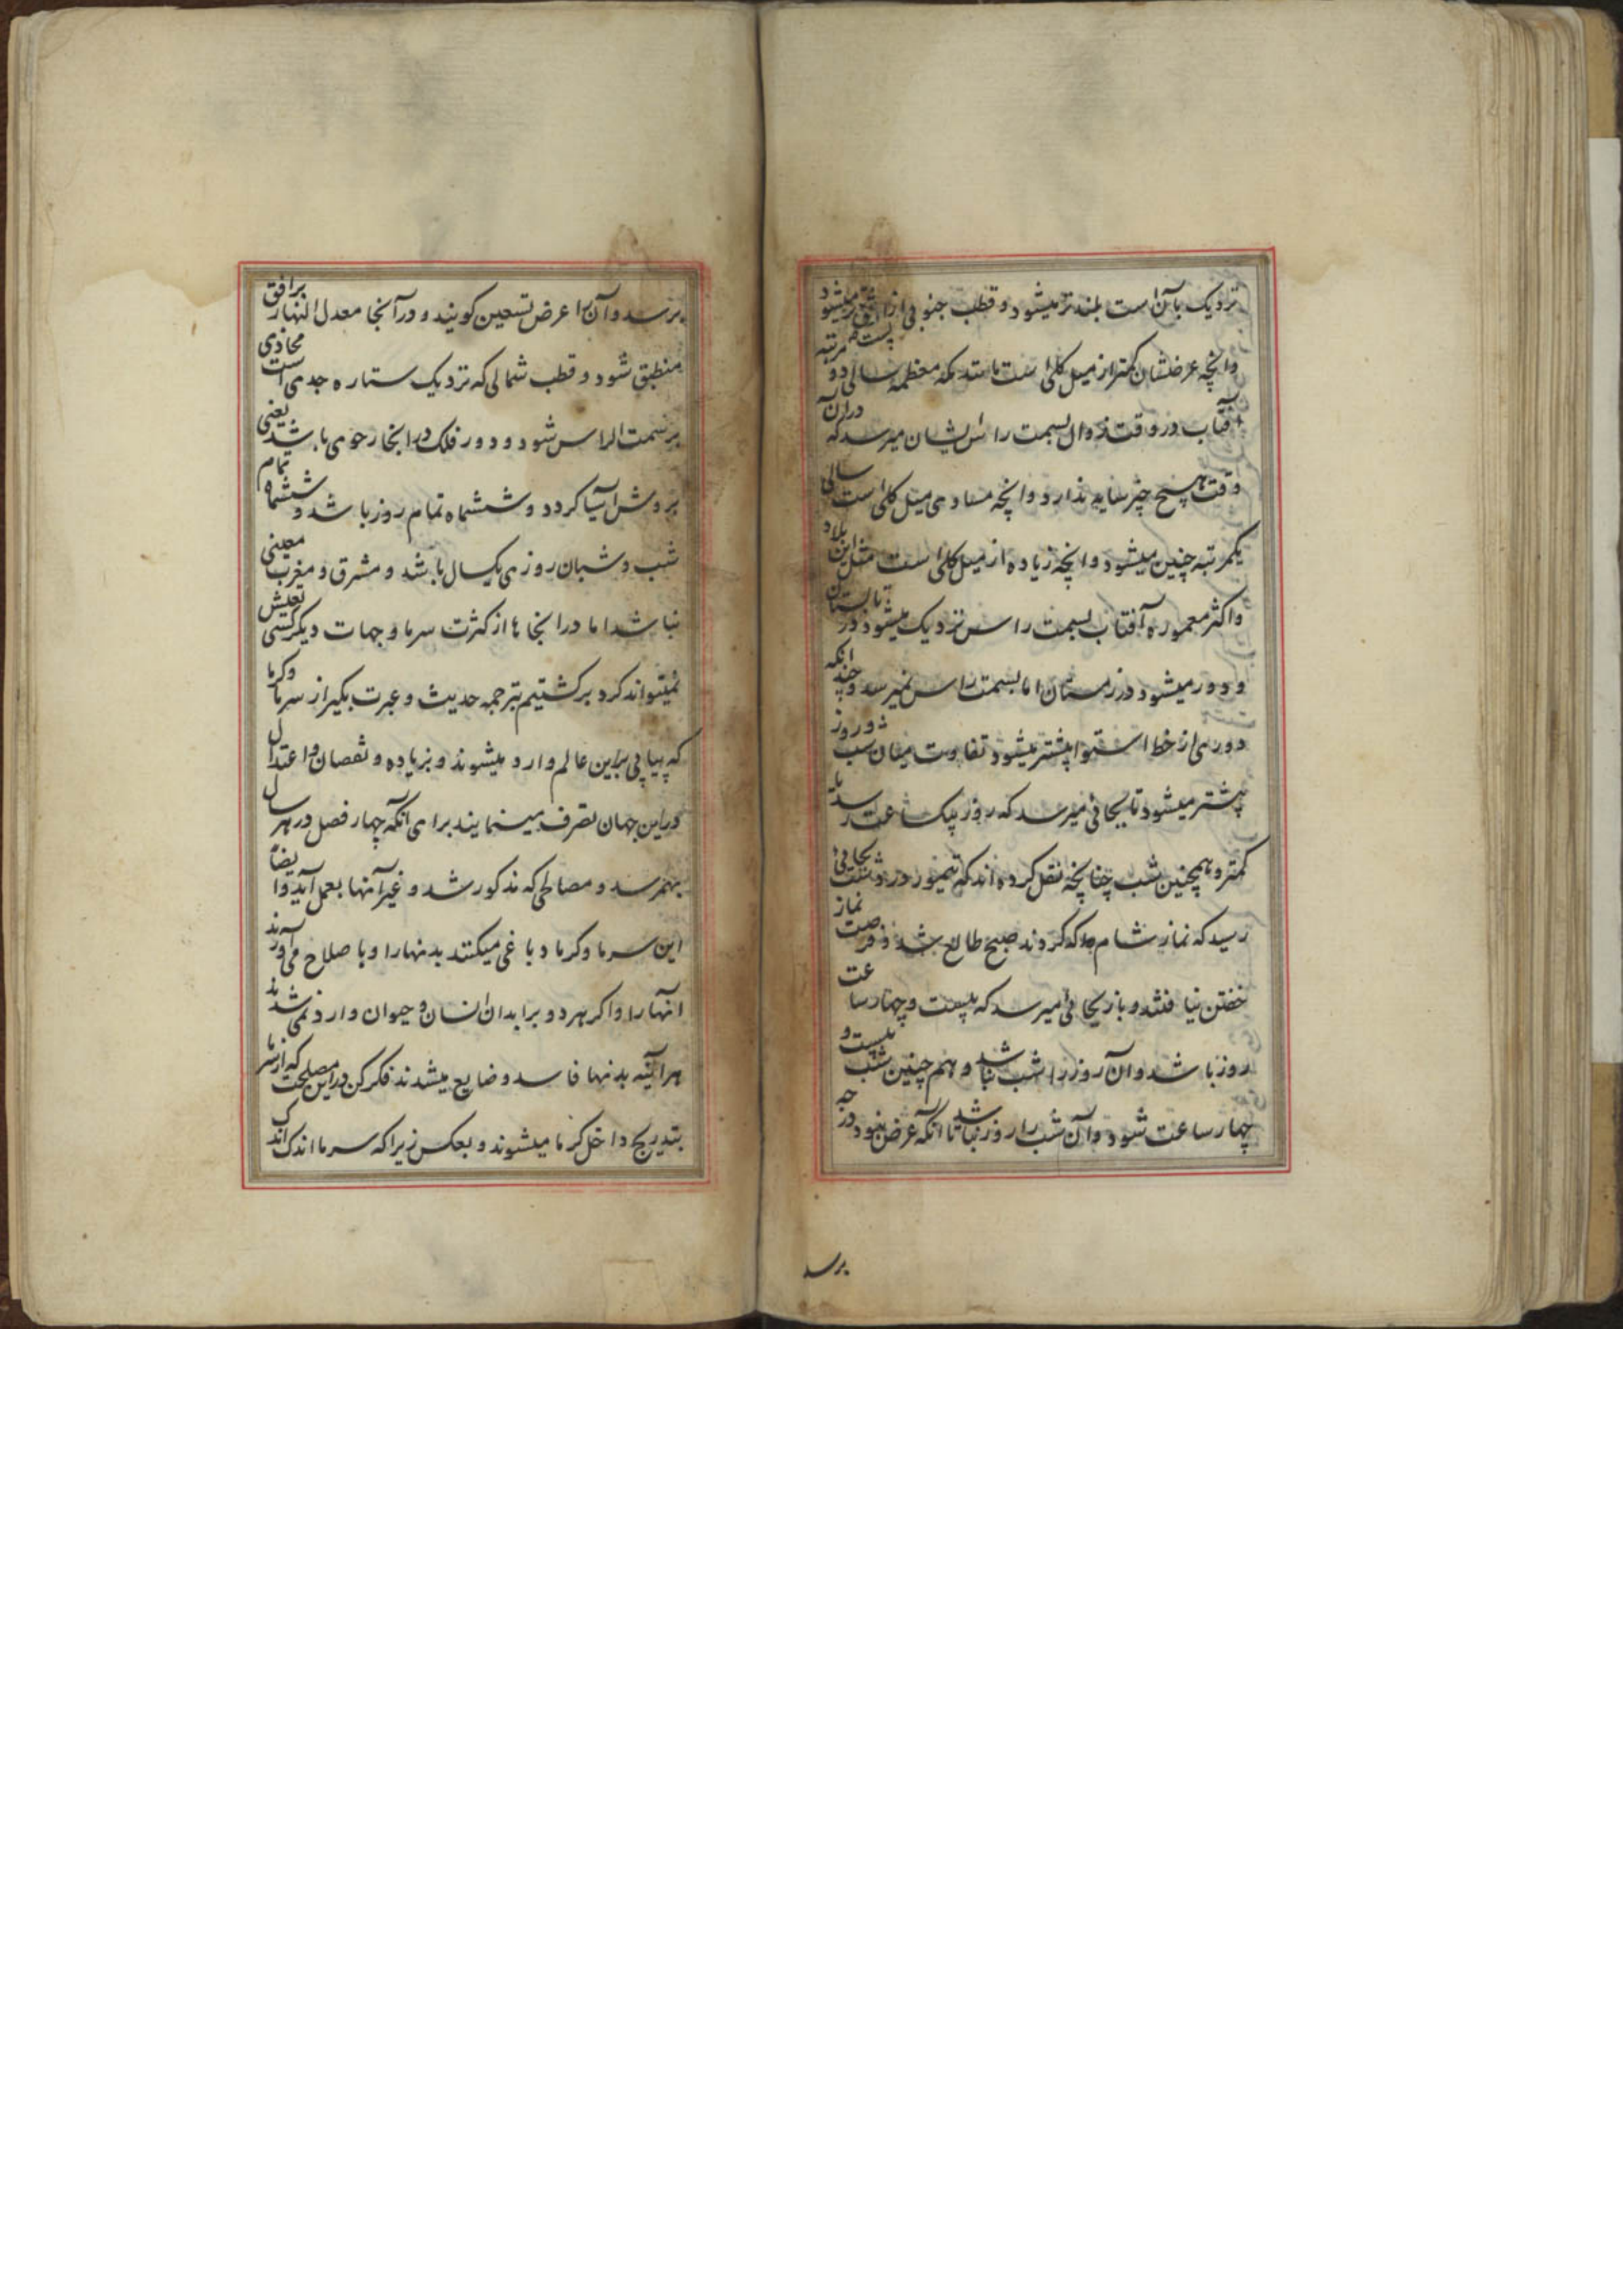 نزدیک بآن است بلندتر میشود و قطب جنوبی از افق پست تر میشود
و انچه عرضشان کمتر از میل کلی است مانند مکه معظمه سالی دو مرتبه
آفتاب در وقت زوال بسمت راس ایشان میرسد که دران
وقت هیچ چیز سایه ندارد و انچه مساوی میل کلی است سالی
یکمرتبه چنین میشود و انچه زیاده از میل کلی است مثل این بلاد
و اکثر معموره آفتاب بسمت راس نزدیک میشود در تابستان
و دور میشود در زمستان اما بسمت راس نمیرسد و چند انکه
دوری از خط استوا بیشتر میشود تفاوت میان شب و روز
بیشتر میشود تا بجائی میرسد که روز بیکساعت رسد یا
کمتر و همچنین شب چنانچه نقل کرده اند که تیمور در دشت بجائی
رسید که نماز شام که کردند صبح طالع شد و فرصت نماز
خفتن نیافتند و باز بجائی میرسد که بیست و چهار ساعت
روز باشد و آن روز را شب نباشد و هم چنین شب بیست و
چهار ساعت شود و آن شب را روز نباشد تا انکه عرض بنود درجه
برسد
برسد و آن را عرض تسعین کویند و در آنجا معدل النهار بر افق
منطبق شود و قطب شمالی که نزدیک ستاره جدی است محاذی
بر سمت الراس شود و دور فلک در انجا رحوی باشد یعنی
بروش آسیا کردد و ششماه تمام روز باشد و ششماه تمام
شب و شبان روزی یکسال باشد و مشرق و مغرب معینی
نباشد اما در انجاها از کثرت سرما و جهات دیکر کسی تعیش
نمیتواند کرد برکشتیم بترجمه حدیث و عبرت بکیر از سرما و کرما
که پیاپی براین عالم وارد میشوند و بزیاده و نقصان و اعتدال
دراین جهان تصرف مینمایند برای آنکه چهار فصل در هر سال
بهمرسد و مصالحی که مذکور شد و غیر آنها بعمل آید و ایضا
این سرما و کرما دباغی میکنند بدنها را و با صلاح می آورند
انها را و اکر هر دو بر ابدان انسان و حیوان وارد نمی شدند
هر آئینه بدنها فاسد و ضایع میشدند فکر کن در این مصلحت که از سرما
بتدریج داخل کرما میشوند و بعکس زیرا که سرما اندک اندک